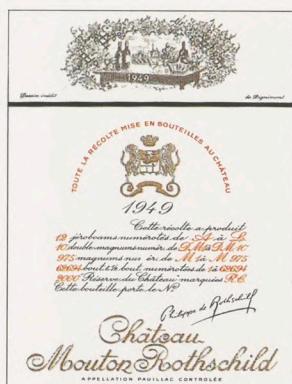 1949
Dessin inédit
de Dignimont
TOUTE LA RÉCOLTE MISE EN BOUTEILLES AU CHÂTEAU
1949
Cette récolte a produit
12 jéroboams numérotés de A à L
10 double-magnums numér. de D.M.1 à D.M.10
975 magnums numér. de M1 à M 975
62694 bout. & ½ bout. numérotées de 1 à 62694
2000 "Réserve du Château" marquées R.C.
Cette bouteille porte le Nº
Philippe de Rothschild
Château
Mouton Rothschild
APPELLATION PAUILLAC CONTROLÉE